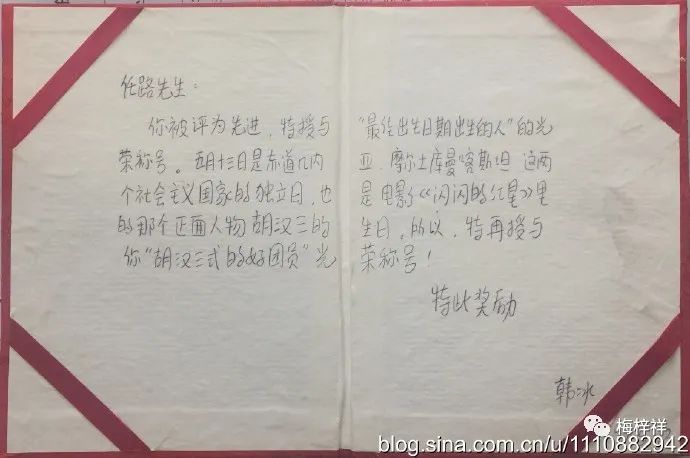 任路先生:
你被评为先进,特授与“最佳出生日期出生的人”的光
荣称号。五月十三日是赤道几内亚、摩尔土库曼喀斯坦 这两
个社会主义国家的独立日,也是电影《闪闪的红星》里
的那个正面人物胡汉三的生日,所以,特再授与
你“胡汉三式的好团员”光荣称号!
特此奖励
韩冰
梅梓祥
blog.sina.com.cn/u/1110882942